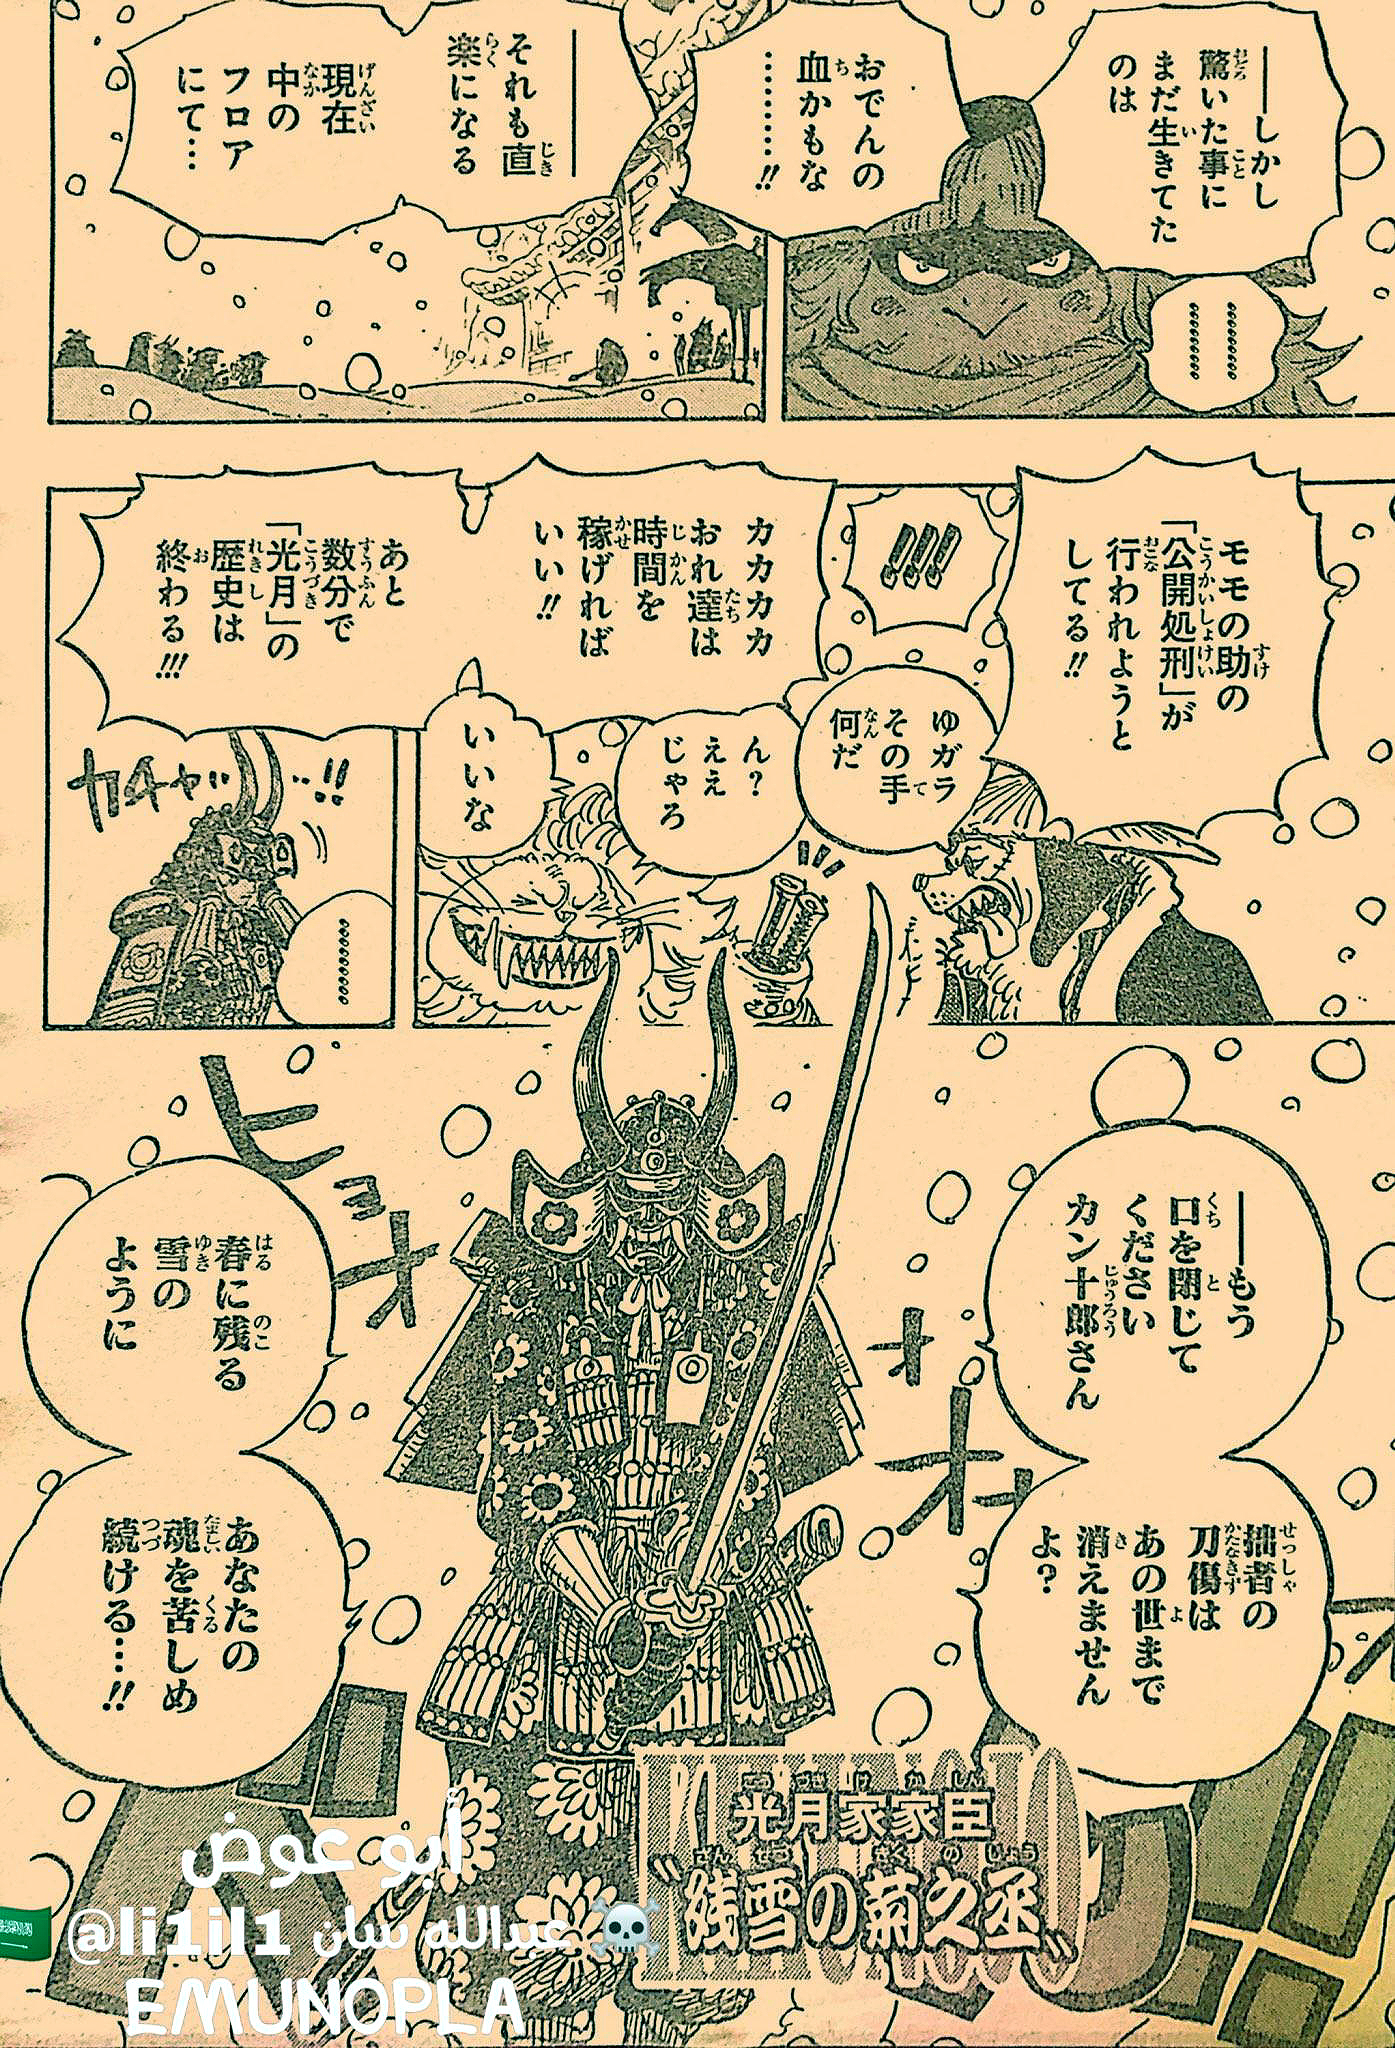 ――しかし
驚いた事に
まだ生きてた
のは
………
………
おでんの
血かもな
………!!
それも直
楽になる
――
現在
中の
フロア
にて…
モモの助の
「公開処刑」が
行われようと
してる!!
!!!
ゆガラ
その手
何だ
ん?
ええ
じゃろ
カカカカ
おれ達は
時間を
稼げれば
いい!!
いいな
あと
数分で
「光月」の
歴史は
終わる!!!
カチャ…
…!!
………
――もう
口を閉じて
ください
カン十郎さん
拙者の
刀傷は
あの世まで
消えません
よ?
ヒョオ
オオ
春に残る
雪の
ように
あなたの
魂を苦しめ
続ける…!!
光月家家臣
〝残雪の菊之丞〟
أبو عوض
@li1il1 عبدالله سان
EMUNOPLA